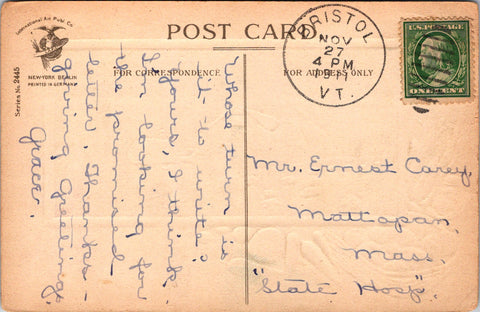 International Art Publ. Co.
NEW-YORK BERLIN
PRINTED IN GERMANY
Series No. 2445
POST CARD
FOR CORRESPONDENCE
FOR ADDRESS ONLY
BRISTOL
NOV
27
4 PM
VT.
U.S. POSTAGE
ONE CENT
Whose turn is
it to write?
Yours, I think,
I'm looking for
the promised
letter. Thanks-
giving Greetings,
Grace.
Mr. Ernest Carey,
Mattapan,
Mass.
"State Hosp".